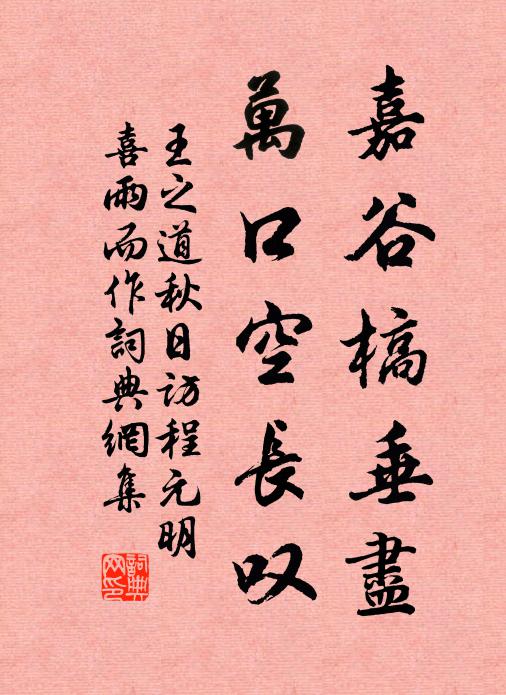 嘉谷槁垂盡
萬口空長叹
王之道秋日访程元明
喜雨而作詞典網集
詞典
网印